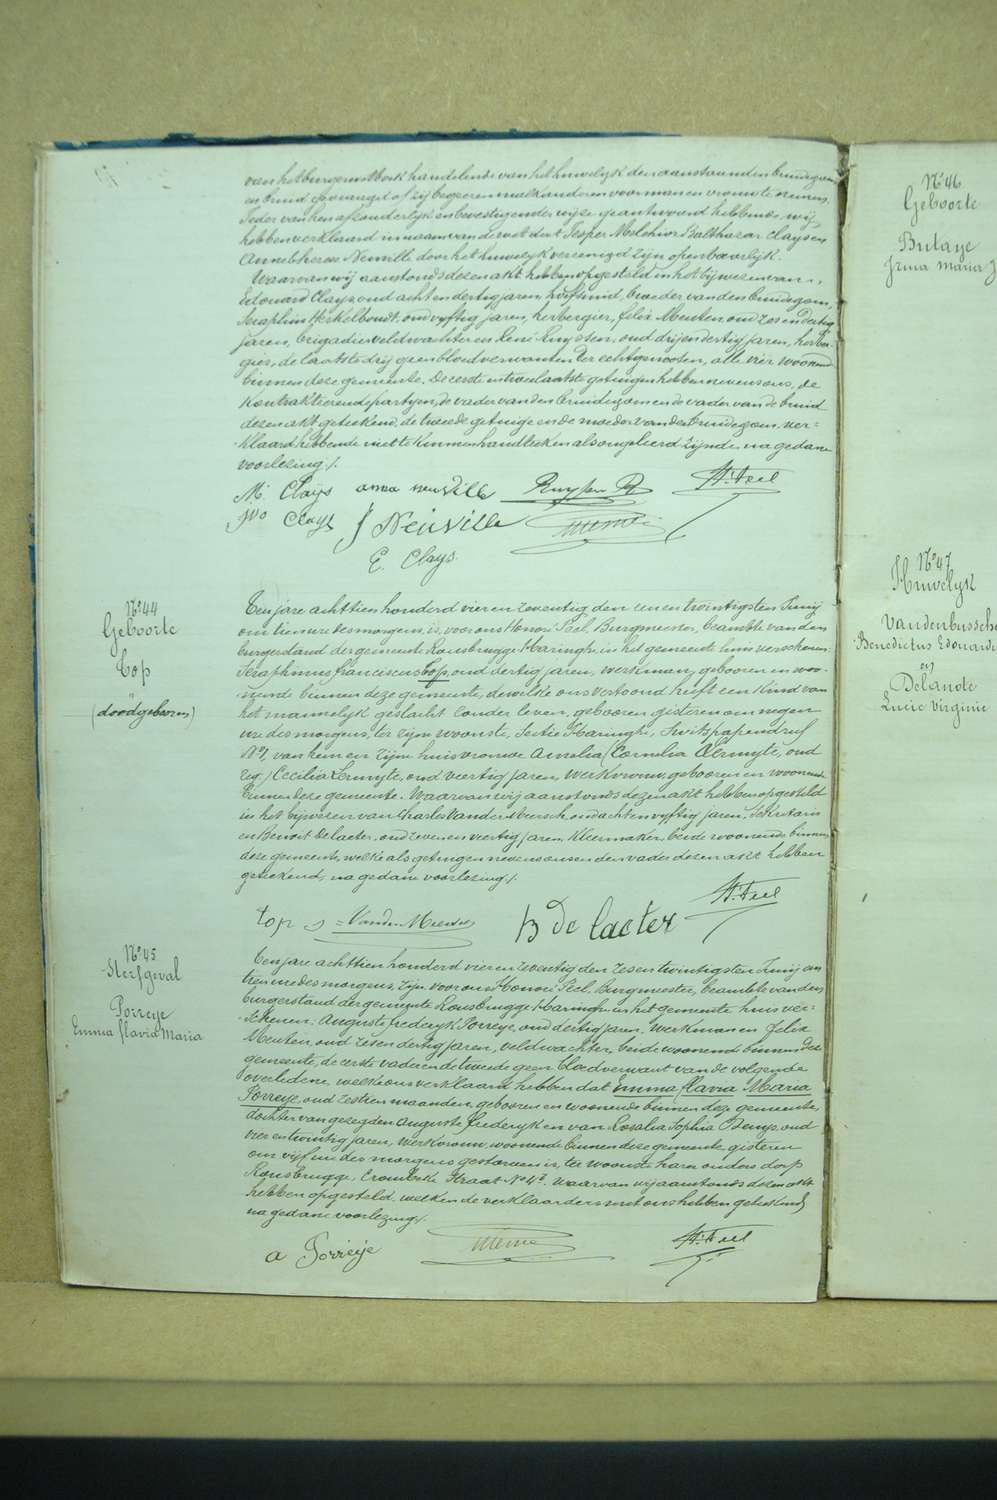 van het burgerwetboek handelende van het huwelijk den aanstaanden bruidegom
en bruid gevraegd of zij begeeren malkanderen voor man en vrouw te nemen,
Ieder van hen afzonderlijk en bevestigender wijze geantwoord hebbende, wij
hebben verklaard in naam van de wet dat Jesper Melchior Balthazar Clays en
Anne Therese Neuville door het huwelijk vereenigd zijn openbaarlijk.
Waarvan wij aanstonds dezen akt hebben opgesteld in het bijwezen van
Edouard Clays, oud acht en dertig jaren, hoefsmid, broeder van den bruidegom,
Seraphin Kerkelboudt, oud vyftig jaren, herbergier, felix Meuten, oud zes en dertig
jaren, brigadier veldwachter en René Ruyssen, oud drij en dertig jaren, herber-
gier, de laatste drij geen bloedverwanten der echtgenooten, alle vier woonende
binnen deze gemeente. De eerste en twee laatste getuigen hebben nevens ons, de
Kontrakteerende partyen, de vader van den bruidegom en de vader van de bruid
dezen akt geteekend, de tweede getuige en de moeder van den bruidegom ver=
klaard hebbende niet te kunnen handteeken als ongeleerd zijnde, na gedane
voorlezing ./.
M. Clays anna neuville Ruyssen R H. Peel
Clays J Neuville
E. Clays
No 44
Geboorte
Top
"
(doodgeboren)
Ten jare achttien honderd vier en zeventig den een en twintigsten Junij
om tien ure des morgens, is, voor ons Honoré Peel, Burgmeester, beambte van den
burgerstand der gemeente Rousbrugge-Haringhe, in het gemeente huis verschenen:
Seraphinus franciscus Top, oud dertig jaren, werkman, gebooren en woo-
nende binnen deze gemeente, dewelke ons vertoond heeft een Kind van
het mannelyk geslacht zonder leven, gebooren gisteren om negen
ure des morgens, ter zijne woonste, Sectie Haringhe,
No 1, van hem en zijne huisvrouwe Amelia Cornelia Lermyte, oud
zeg: Cecilia Lermyte, oud veertig jaren, werkvrouw, gebooren en woonende
binnen deze gemeente. Waarvan wij aanstonds dezen akt hebben opgesteld
in het bijwezen van Charles Vandermeersch, oud acht en vyftig jaren, Sekretaris
en Benoit Delaeter, oud zeven en veertig jaren, Kleermaker, beide woonende binnen
deze gemeente, welke als getuigen nevens ons en den vader dezen akt hebben
geteekend, na gedane voorlezing ./.
top s = Vander Meersch B De laeter H. Peel
No 45
Sterfgeval
Porreye
Emma flavia Maria
Ten jare achttien honderd vier en zeventig den zes en twintigsten Junij om
tien ure des morgens, zijn voor ons Honoré Peel, Burgmeester, beambte van den
burgerstand der gemeente Rousbrugge-Haringhe in het gemeente huis ver-
schenen: Auguste frederyk Porreye, oud dertig jaren, werkman en felix
Meuten, oud zes en dertig jaren, veldwachter, beide woonende binnen deze
gemeente, de eerste vader en de tweede geen bloedverwant van de volgende
overledene, welke ons verklaard hebben dat Emma flavia Maria
Porreye, oud zestien maanden, gebooren en woonende binnen deze gemeente,
dochter van gezegden Auguste frederyk en van Rosalia Sophia Idemys, oud
vier en twintig jaren, werkvrouw, woonende binnen deze gemeente, gisteren
om vijf ure des morgens gestorven is, ter woonste haren ouders dorp
Rousbrugge, Crombeke Straat No 4. Waarvan wij aanstonds dezen akt
hebben opgesteld, welken de verklaarders met ons hebben geteekend,
na gedane voorlezing ./.
a Porreye H. Peel
No 46
Geboorte
Butaye
Irma Maria J
No 47
Huwelyk
Vandenbussche
Benedictus Edouardus
en
Delande
Lucie Virginie